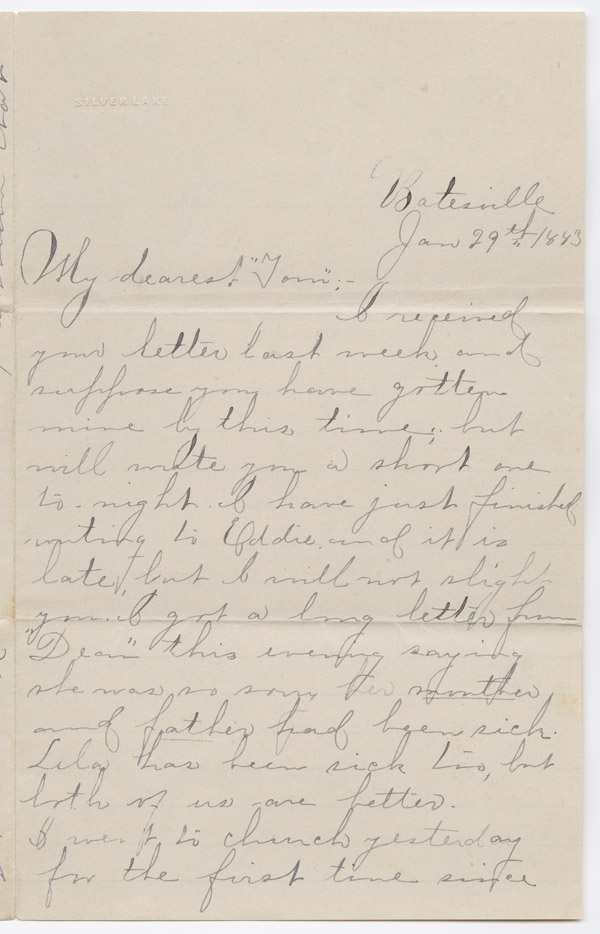 SILVER LAKE
Batesville
Jan 29th, 1883
My dearest "Tom";-
I received
your letter last week and
suppose you have gotten
mine by this time; but
will write you a short one
to-night. I have just finished
writing to Eddie and it is
late, but I will not slight
you. I got a long letter from
"Dean" this evening saying
she was so sorry her mouther
and father had been sick.
Lila has been sick too, but
both of us are better.
I went to church yesterday
for the first time since